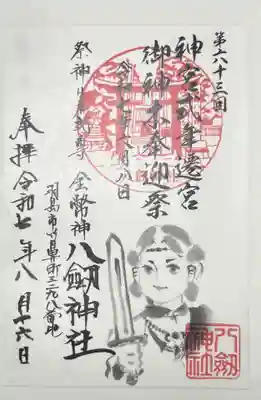 第六十三回
神宮式年遷宮
御神木奉迎祭
令和七年六月八日
祭神 日本武尊
八劔神社
羽島市竹鼻町
奉拝 令和七年八月十六日
八劔
神社